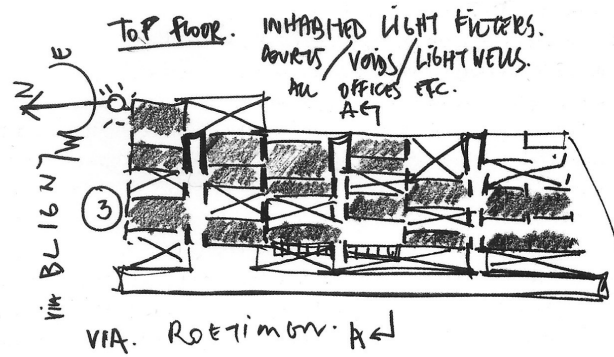 TOP FLOOR. INHABITED LIGHT FILTERS.
COURTS / VOIDS / LIGHT WELLS.
ALL OFFICES ETC.
AG
E
N
3
VIA BLIGNY
VIA. ROETIMEN. A